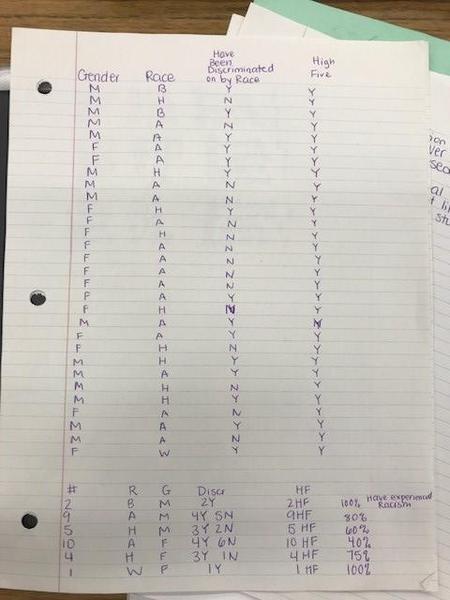 Gender Race Have Been Discriminated on by Race High Five
M B Y Y
M H N Y
M B Y Y
M A N Y
M A Y Y
F A Y Y
F A Y Y
M H Y Y
M A N Y
M A N Y
F H Y Y
F A N Y
F H N Y
F A N Y
F A N Y
F A N Y
F A N Y
F A Y Y
F H N Y
M A Y Y
F A Y Y
F H N Y
M H Y Y
M A Y Y
M H N Y
M H Y Y
F A N Y
M A Y Y
M A N Y
F W Y Y
# R G Discr HF
2 B M 2Y 2HF 100% Have experienced Racism
9 A M 4Y 5N 9HF 80%
5 H M 3Y 2N 5 HF 60%
10 A F 4Y 6N 10 HF 40%
4 H F 3Y 1N 4 HF 75%
1 W F 1Y 1 HF 100%